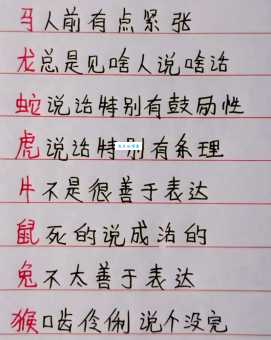 马人前有点紧张
龙总是见啥人说啥话
蛇说话特别有鼓励性
虎说话特别有条理
牛不是很善于表达
鼠死的说成活的
兔不太善于表达
猴口齿伶俐说个没完